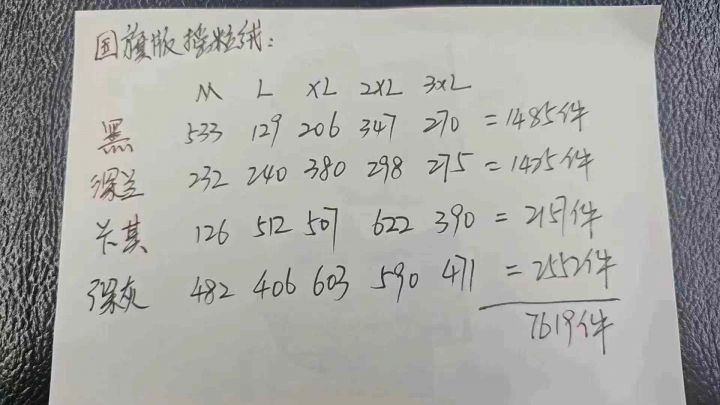 国旗版摇粒绒:
M L XL 2XL 3XL
黑 533 129 206 347 270 =1485件
深兰 232 240 380 298 275 =1425件
卡其 126 512 507 622 390 =2157件
深灰 482 406 603 590 471 =2552件
7619件